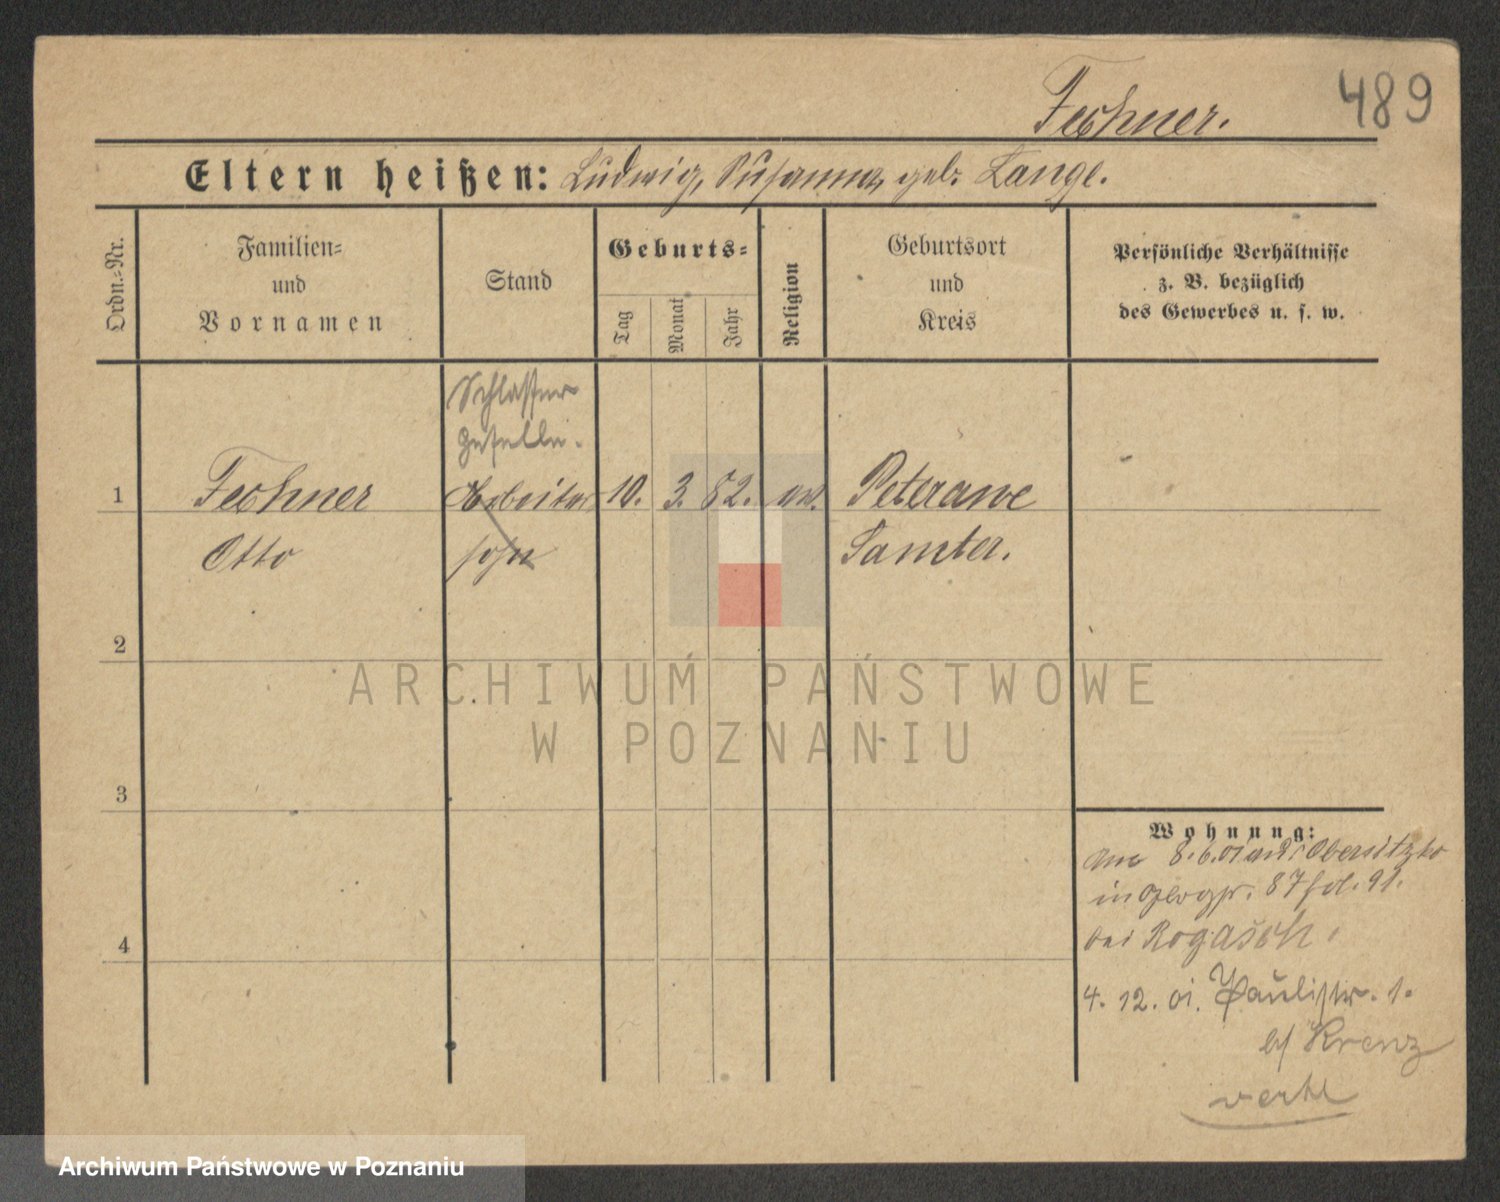 489
Fechner.
Eltern heißen: Ludwig, Susanna, geb. Lange.
Ordn.-Nr.
Familien-
und
Vornamen
Stand
Geburts-
Tag
Monat
Jahr
Religion
Geburtsort
und
Kreis
Persönliche Verhältnisse
z. B. bezüglich
des Gewerbes u. s. w.
Schlosser
geselle.
1 Fechner Arbeiter 10. 3. 82. ev. Peterawe
Otto sohn Samter.
2
ARCHIWUM PAŃSTWOWE
W POZNANIU
3
Wohnung:
8.6.01 Obersitzko
in 87 fol. 91.
bei Rogasch.
4
4. 12. 01. Paulistr. 1.
b/ Krenz
verte
Archiwum Państwowe w Poznaniu